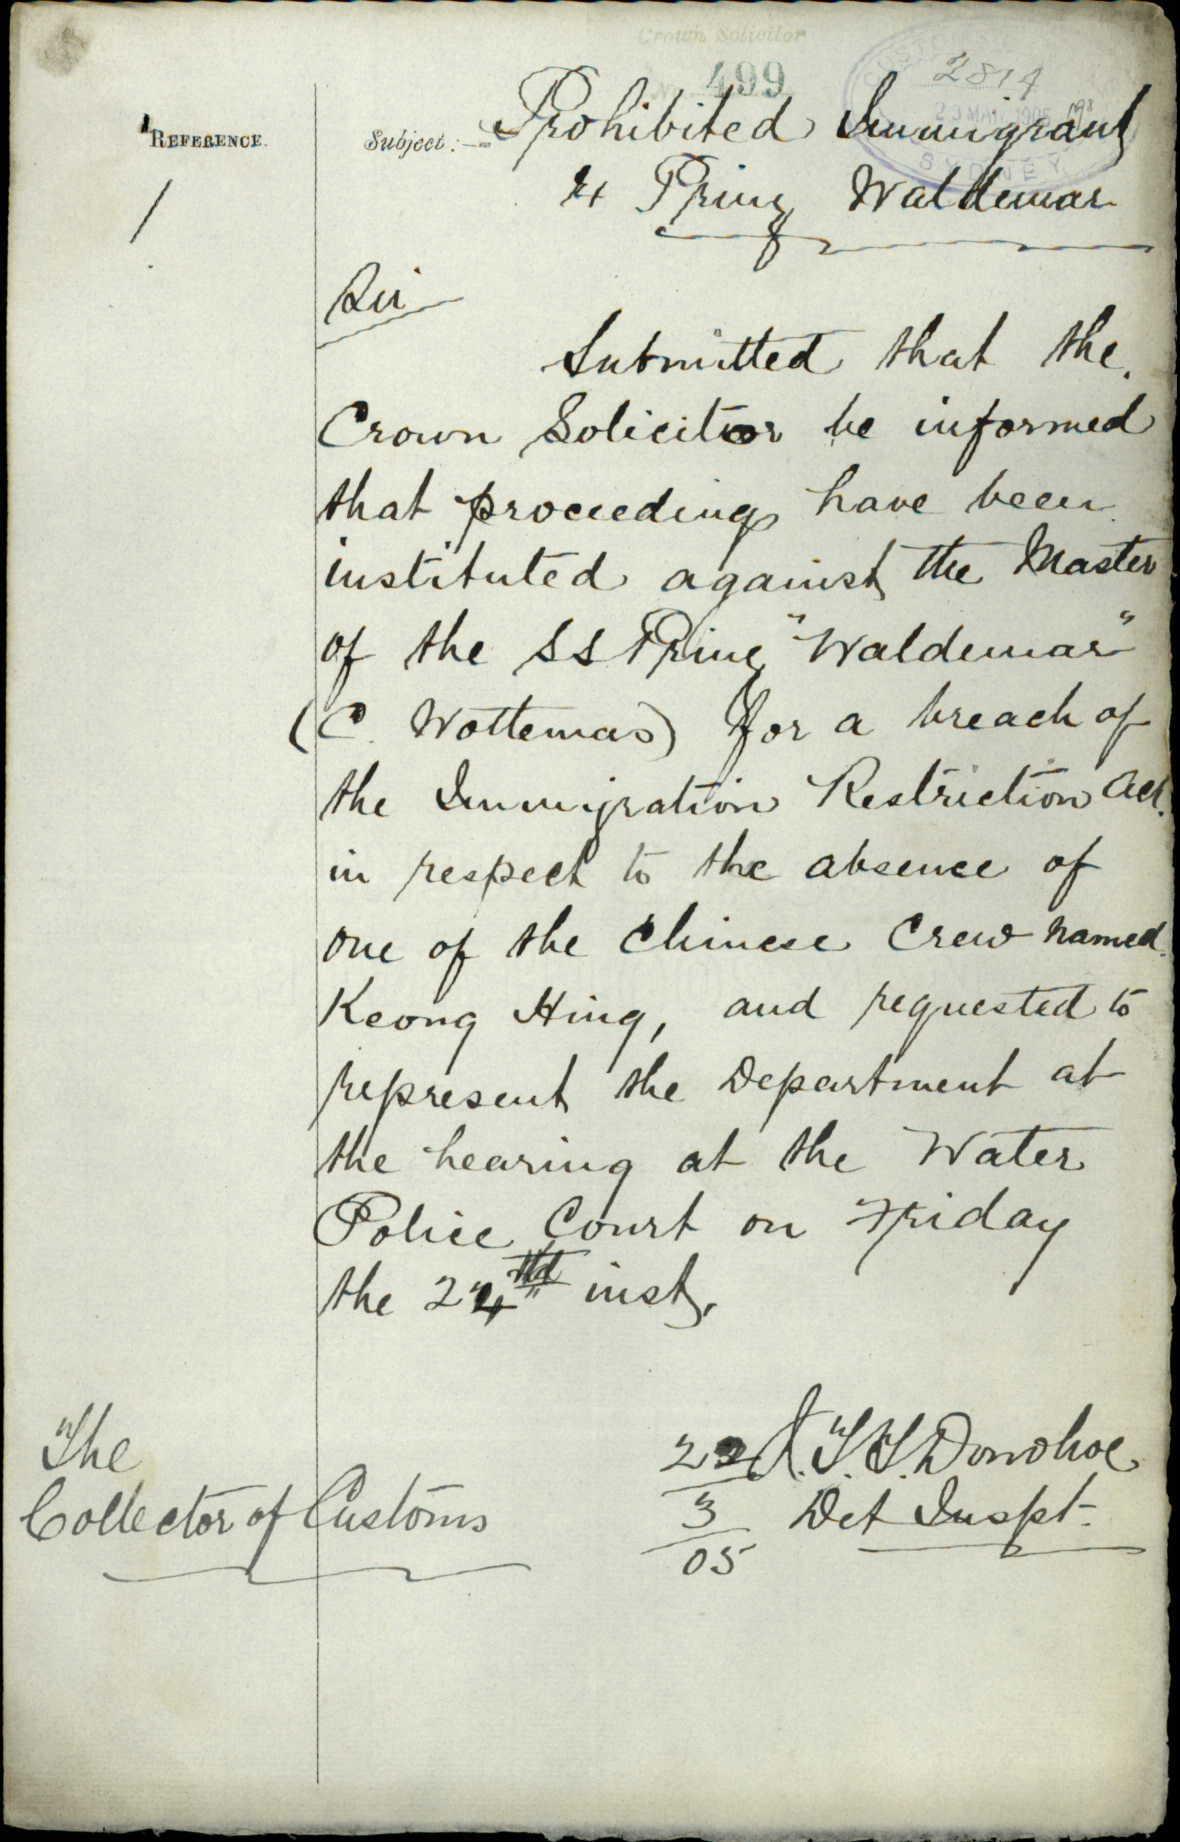 Crown Solicitor
No. 499
2814
CUSTOMS
23 MAR 1905
SYDNEY
REFERENCE.
Subject:— Prohibited Immigrant
ex Prinz Waldemar
1
Sir
Submitted that the
Crown Solicitor be informed
that proceedings have been
instituted against the Master
of the SS Prinz "Waldemar"
(C. Wottemas) for a breach of
the Immigration Restriction Act.
in respect to the absence of
one of the Chinese Crew named
Keong Hing, and requested to
represent the Department at
the hearing at the Water
Police Court on Friday
the 24th inst.
22/3/05 J.T.T. Donohoe
Det Inspt.
The
Collector of Customs